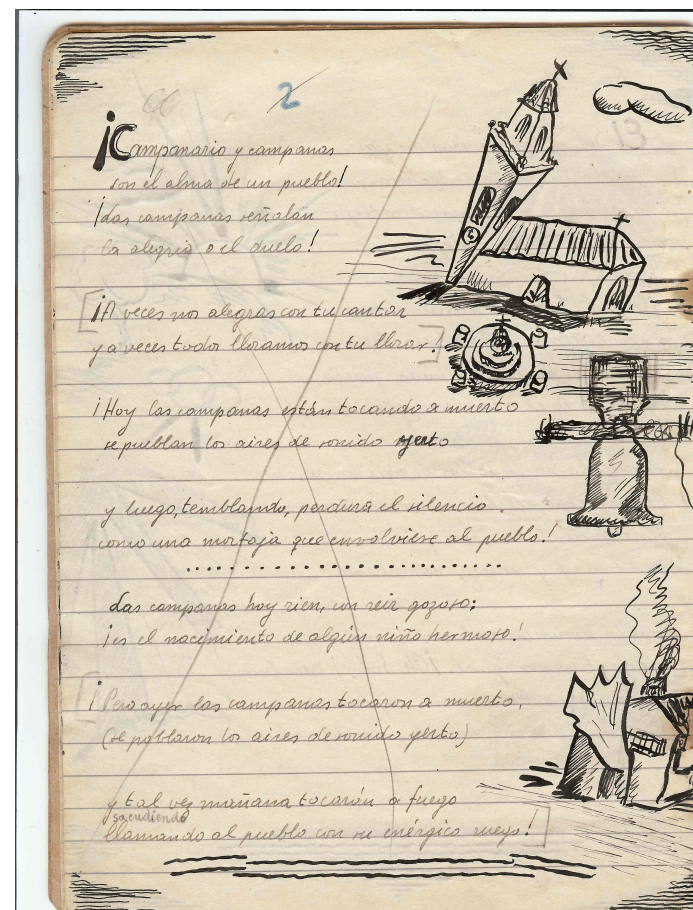 2
¡Campanario y campanas
son el alma de un pueblo!
¡Las campanas señalan
la alegría o el duelo!
[¡A veces nos alegras con tu cantar
y a veces todos lloramos con tu llorar!]
¡Hoy las campanas están tocando a muerto
se pueblan los aires de sonido yerto
y luego, temblando, perdura el silencio
como una mortaja que envolviese al pueblo!
Las campanas hoy rien, un reir gozoso:
¡es el nacimiento de algún niño hermoso!
[¡Pero ayer las campanas tocaron a muerto,
(se poblaron los aires de sonido yerto)
y tal vez mañana tocarán a fuego
sacudiendo
llamando al pueblo con su enérgico ruego!]